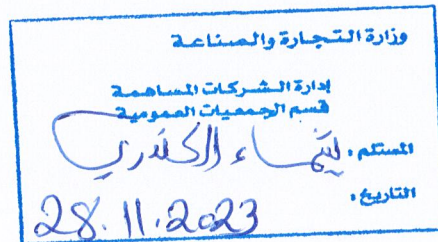 وزارة التجارة والصناعة
إدارة الشركات المساهمة
قسم الجمعيات العمومية
المستلم : الكندري
التاريخ :
28.11.2023